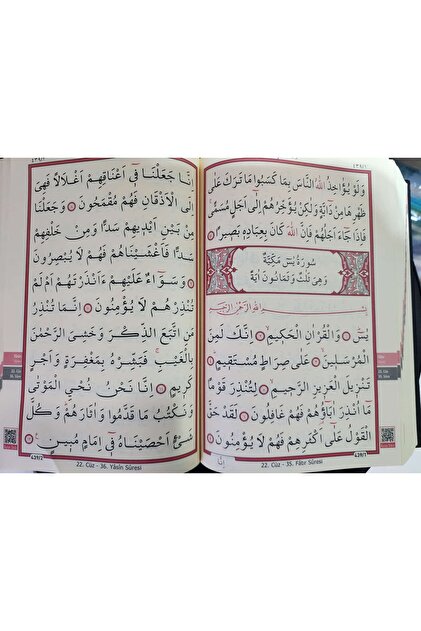 ٤٣٩/١
وَلَوْ يُؤَاخِذُ اللّٰهُ النَّاسَ بِمَا كَسَبُوا مَا تَرَكَ عَلٰى
ظَهْرِهَا مِنْ دَٓابَّةٍ وَلٰكِنْ يُؤَخِّرُهُمْ اِلٰٓى اَجَلٍ مُسَمًّىۚ
فَاِذَا جَٓاءَ اَجَلُهُمْ فَاِنَّ اللّٰهَ كَانَ بِعِبَادِه۪ بَص۪يرًا
سُورَةُ يٰسٓ مَكِّيَّةٌ
وَهِيَ ثَلٰثٌ وَثَمَانُونَ اٰيَةً
بِسْمِ اللّٰهِ الرَّحْمٰنِ الرَّح۪يمِ
يٰسٓۜ وَالْقُرْاٰنِ الْحَك۪يمِۙ اِنَّكَ لَمِنَ
الْمُرْسَل۪ينَۙ عَلٰى صِرَاطٍ مُسْتَق۪يمٍۜ
تَنْز۪يلَ الْعَز۪يزِ الرَّح۪يمِۙ لِتُنْذِرَ قَوْمًا
مَٓا اُنْذِرَ اٰبَٓاؤُ۬هُمْ فَهُمْ غَافِلُونَ لَقَدْ حَقَّ
الْقَوْلُ عَلٰٓى اَكْثَرِهِمْ فَهُمْ لَا يُؤْمِنُونَ
اِنَّا
22. Cüz - 35. Fâtır Sûresi
439/1
اِنَّا جَعَلْنَا ف۪ٓي اَعْنَاقِهِمْ اَغْلَالًا فَهِيَ
اِلَى الْاَذْقَانِ فَهُمْ مُقْمَحُونَ وَجَعَلْنَا
مِنْ بَيْنِ اَيْد۪يهِمْ سَدًّا وَمِنْ خَلْفِهِمْ
سَدًّا فَاَغْشَيْنَاهُمْ فَهُمْ لَا يُبْصِرُونَ
وَسَوَٓاءٌ عَلَيْهِمْ ءَاَنْذَرْتَهُمْ اَمْ لَمْ
تُنْذِرْهُمْ لَا يُؤْمِنُونَ اِنَّمَا تُنْذِرُ
مَنِ اتَّبَعَ الذِّكْرَ وَخَشِيَ الرَّحْمٰنَ
بِالْغَيْبِۚ فَبَشِّرْهُ بِمَغْفِرَةٍ وَاَجْرٍ
كَر۪يمٍ اِنَّا نَحْنُ نُحْيِ الْمَوْتٰى
وَنَكْتُبُ مَا قَدَّمُوا وَاٰثَارَهُمْۜ وَكُلَّ
شَيْءٍ اَحْصَيْنَاهُ ف۪ٓي اِمَامٍ مُب۪ينٍ
22. Cüz - 36. Yâsîn Sûresi
439/2